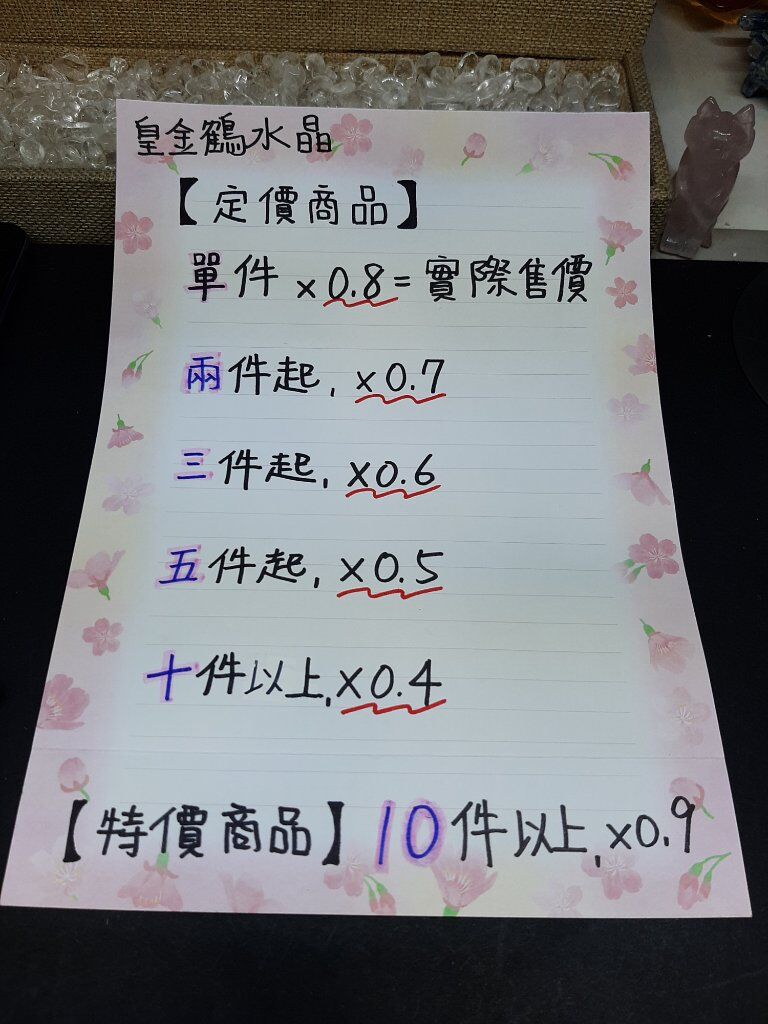 皇金鶴水晶
【定價商品】
單件 x 0.8 = 實際售價
兩件起, x 0.7
三件起, x0.6
五件起, x0.5
十件以上, x0.4
【特價商品】10件以上, x0.9